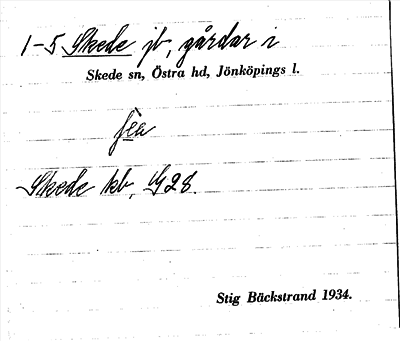 1-5 Skede jb, gårdar i
Skede sn, Östra hd, Jönköpings l.
Skede kb, G28.
Stig Bäckstrand 1934.